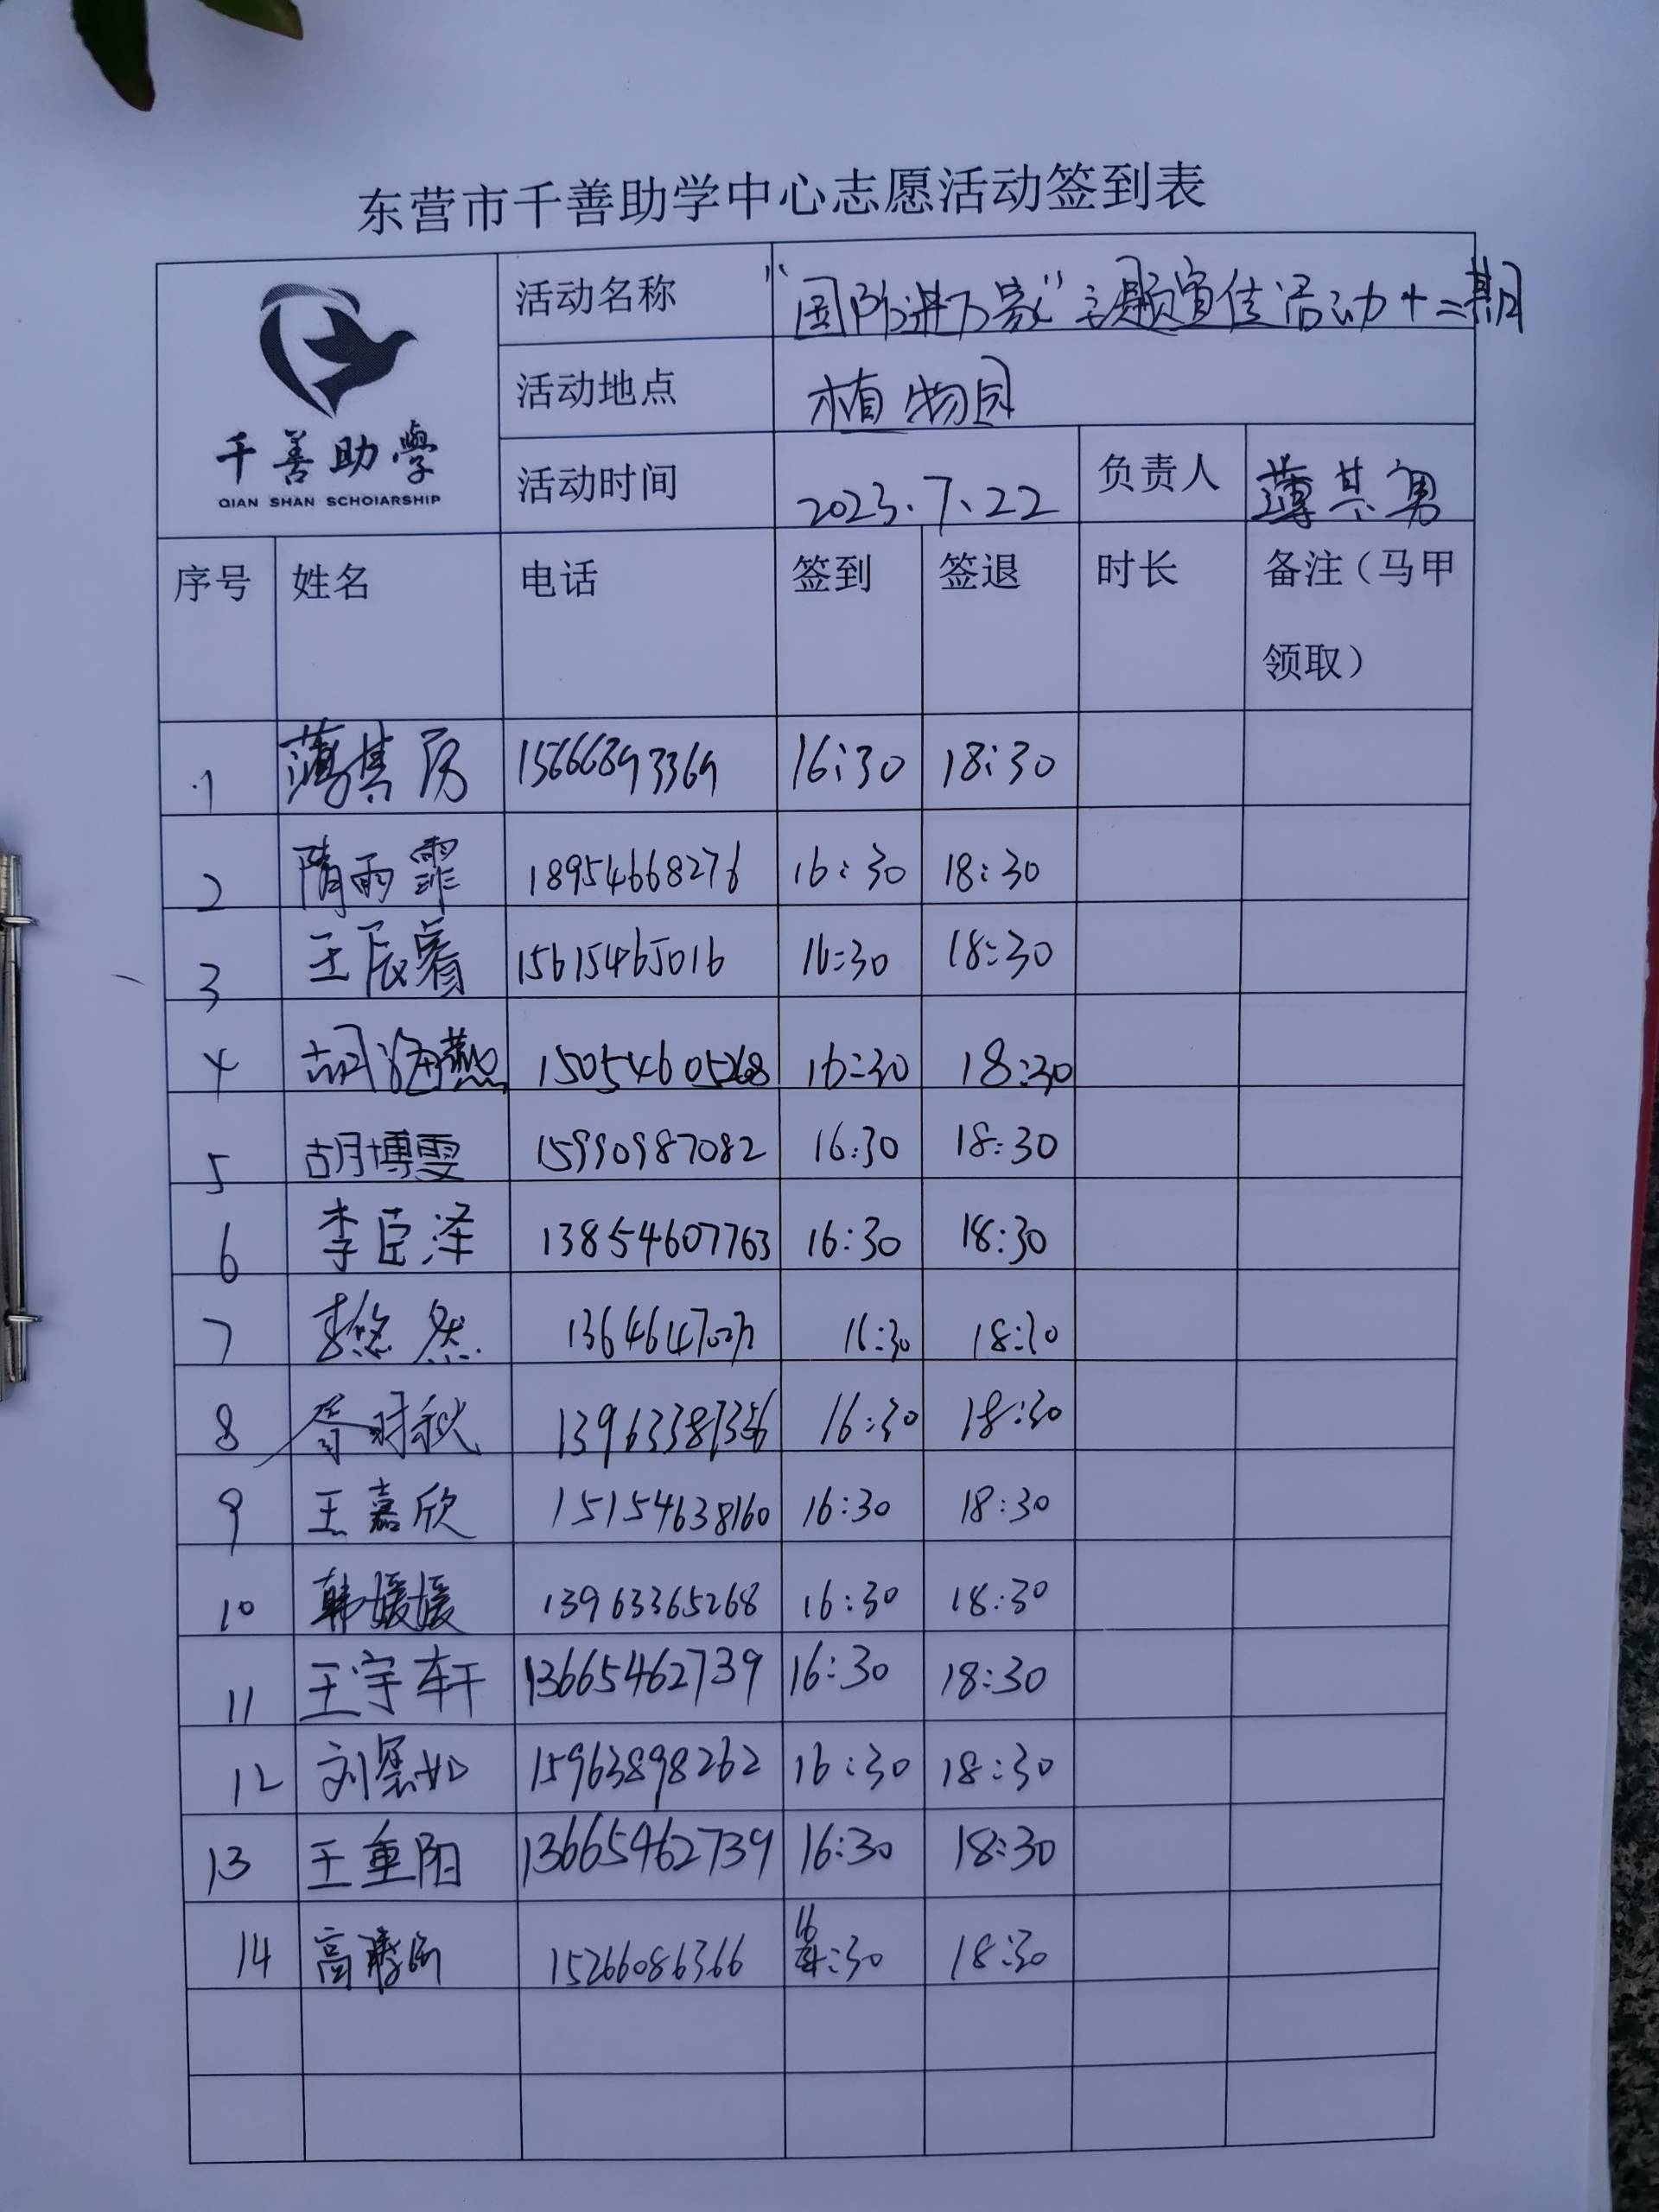 东营市千善助学中心志愿活动签到表
千善助學
QIAN SHAN SCHOIARSHIP
活动名称 “国防进万家”主题宣传活动十二期
活动地点 植物园
活动时间 2023.7.22 负责人 薄其勇
序号 姓名 电话 签到 签退 时长 备注（马甲
领取）
1 薄其 15666893369 16:30 18:30
2 隋雨霏 18954668276 16:30 18:30
3 王辰睿 15615465016 16:30 18:30
4 胡海燕 15054605268 16:30 18:30
5 胡博雯 15990987082 16:30 18:30
6 李臣泽 13854607763 16:30 18:30
7 李悠然 16:30 18:30
8 16:30 18:30
9 王嘉欣 15154638160 16:30 18:30
10 韩媛媛 13963365268 16:30 18:30
11 王宇轩 13665462739 16:30 18:30
12 刘 15963898262 16:30 18:30
13 王重阳 13665462739 16:30 18:30
14 高 15266086366 16:30 18:30